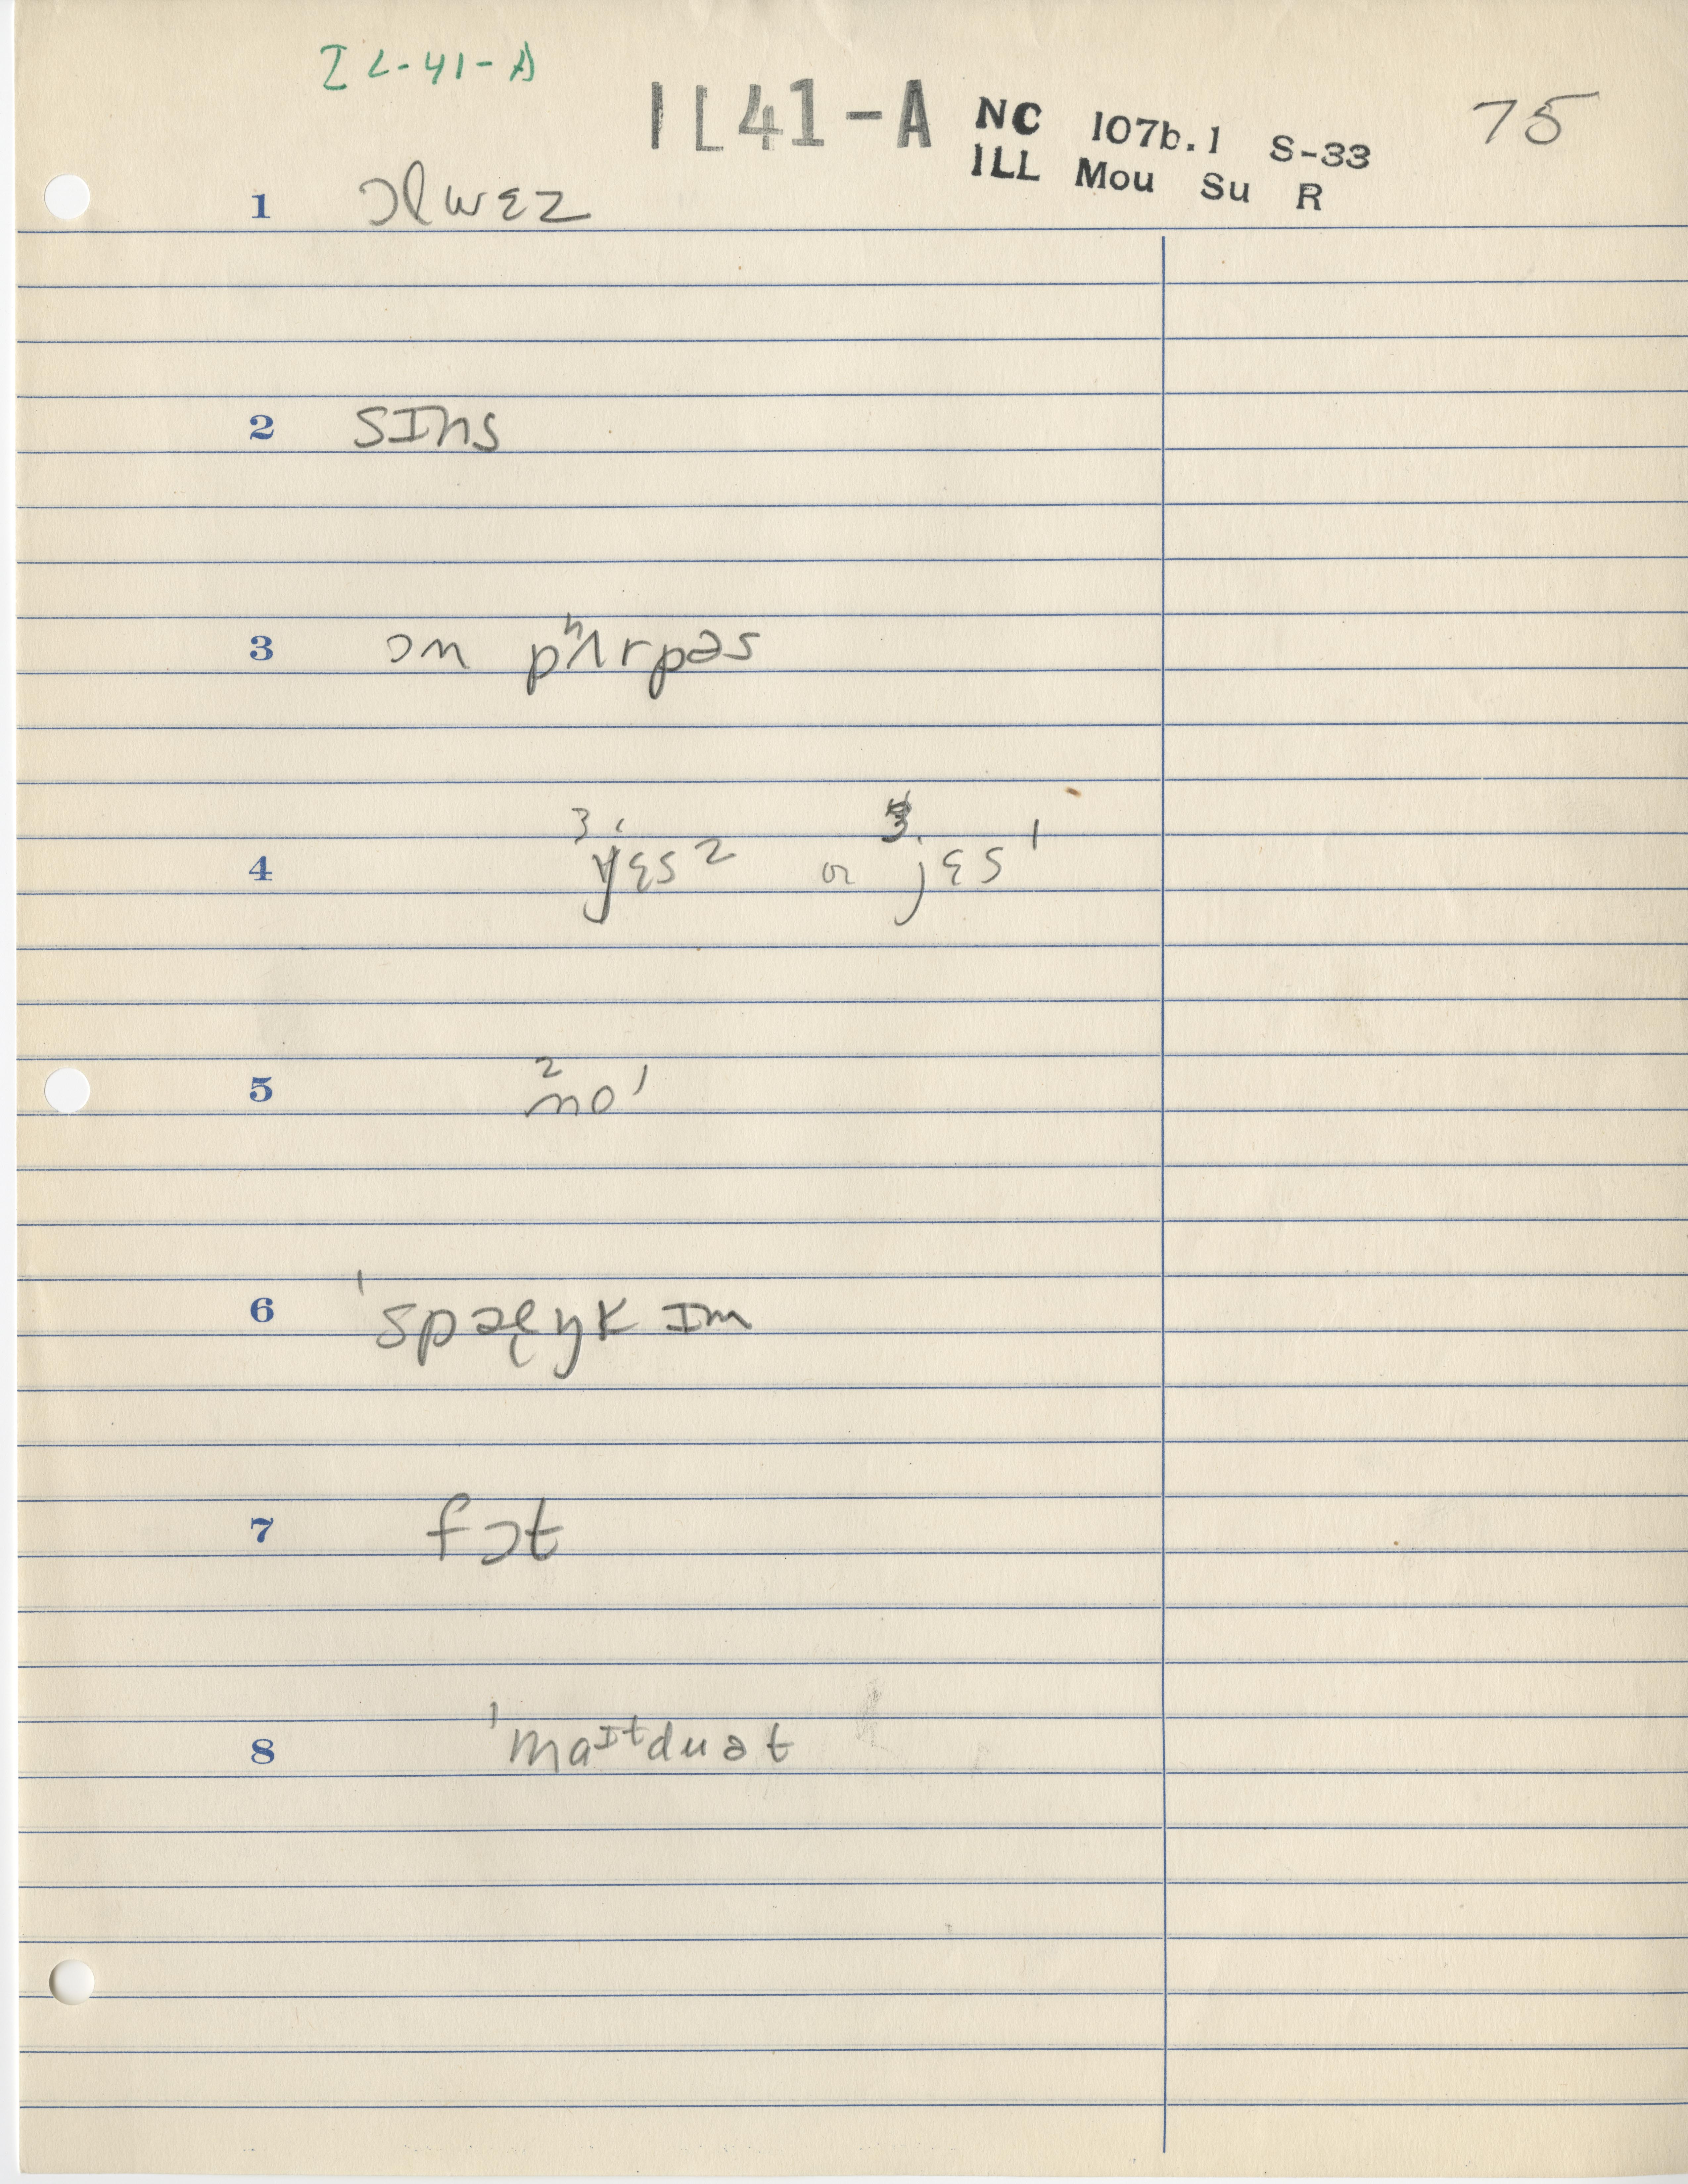 IL-41-A
IL41-A NC 107b.1 S-33 75
ILL Mou Su R
1 ɔlwɛz
2 sɪns
3 ɔn pʰʌrpəs
4 ³jɛs² or ³jɛs¹
5 ²no¹
6
7 fɔt
8 ˈmaɪtduət